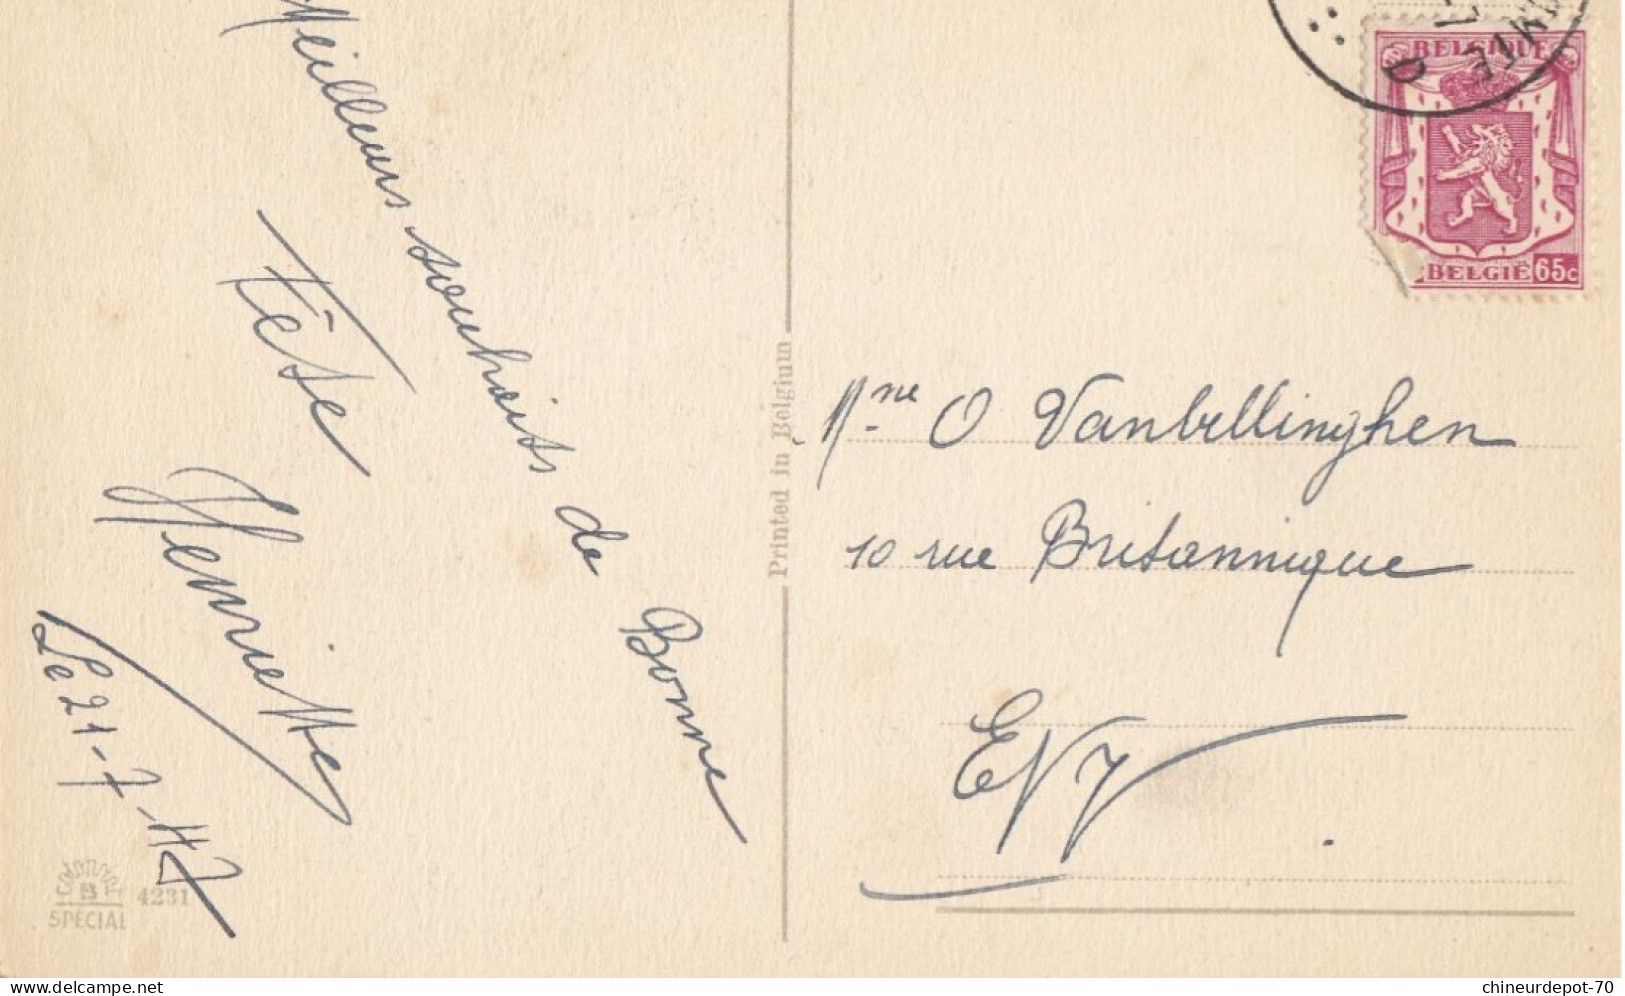 Meilleurs souhaits de Bonne
Fête
Henriette
Le 21-7-47
colorprint
B
SPECIAL
4231
Printed in Belgium
BELGIQUE
BELGIË 65c
Mme O Vanbellinghen
10 rue Britannique
EV7
www.delcampe.net
chineurdepot-70